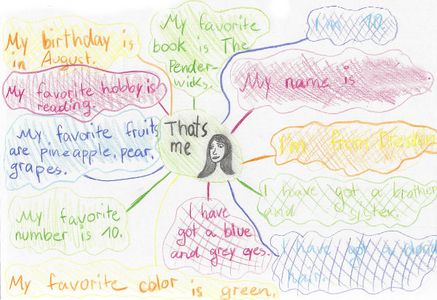 My birthday is
in August.
My favorite
book is The
Pender-
wicks.
I'm 10.
My favorite hobby is
reading.
My name is
My favorite fruits
are pineapple, pear,
grapes.
Thats
me
I'm from Dresden
I have got a brother
and a sister.
My favorite
number is 10.
I have
got a blue
and grey eyes.
I have got a blond
hair.
My favorite color is green.